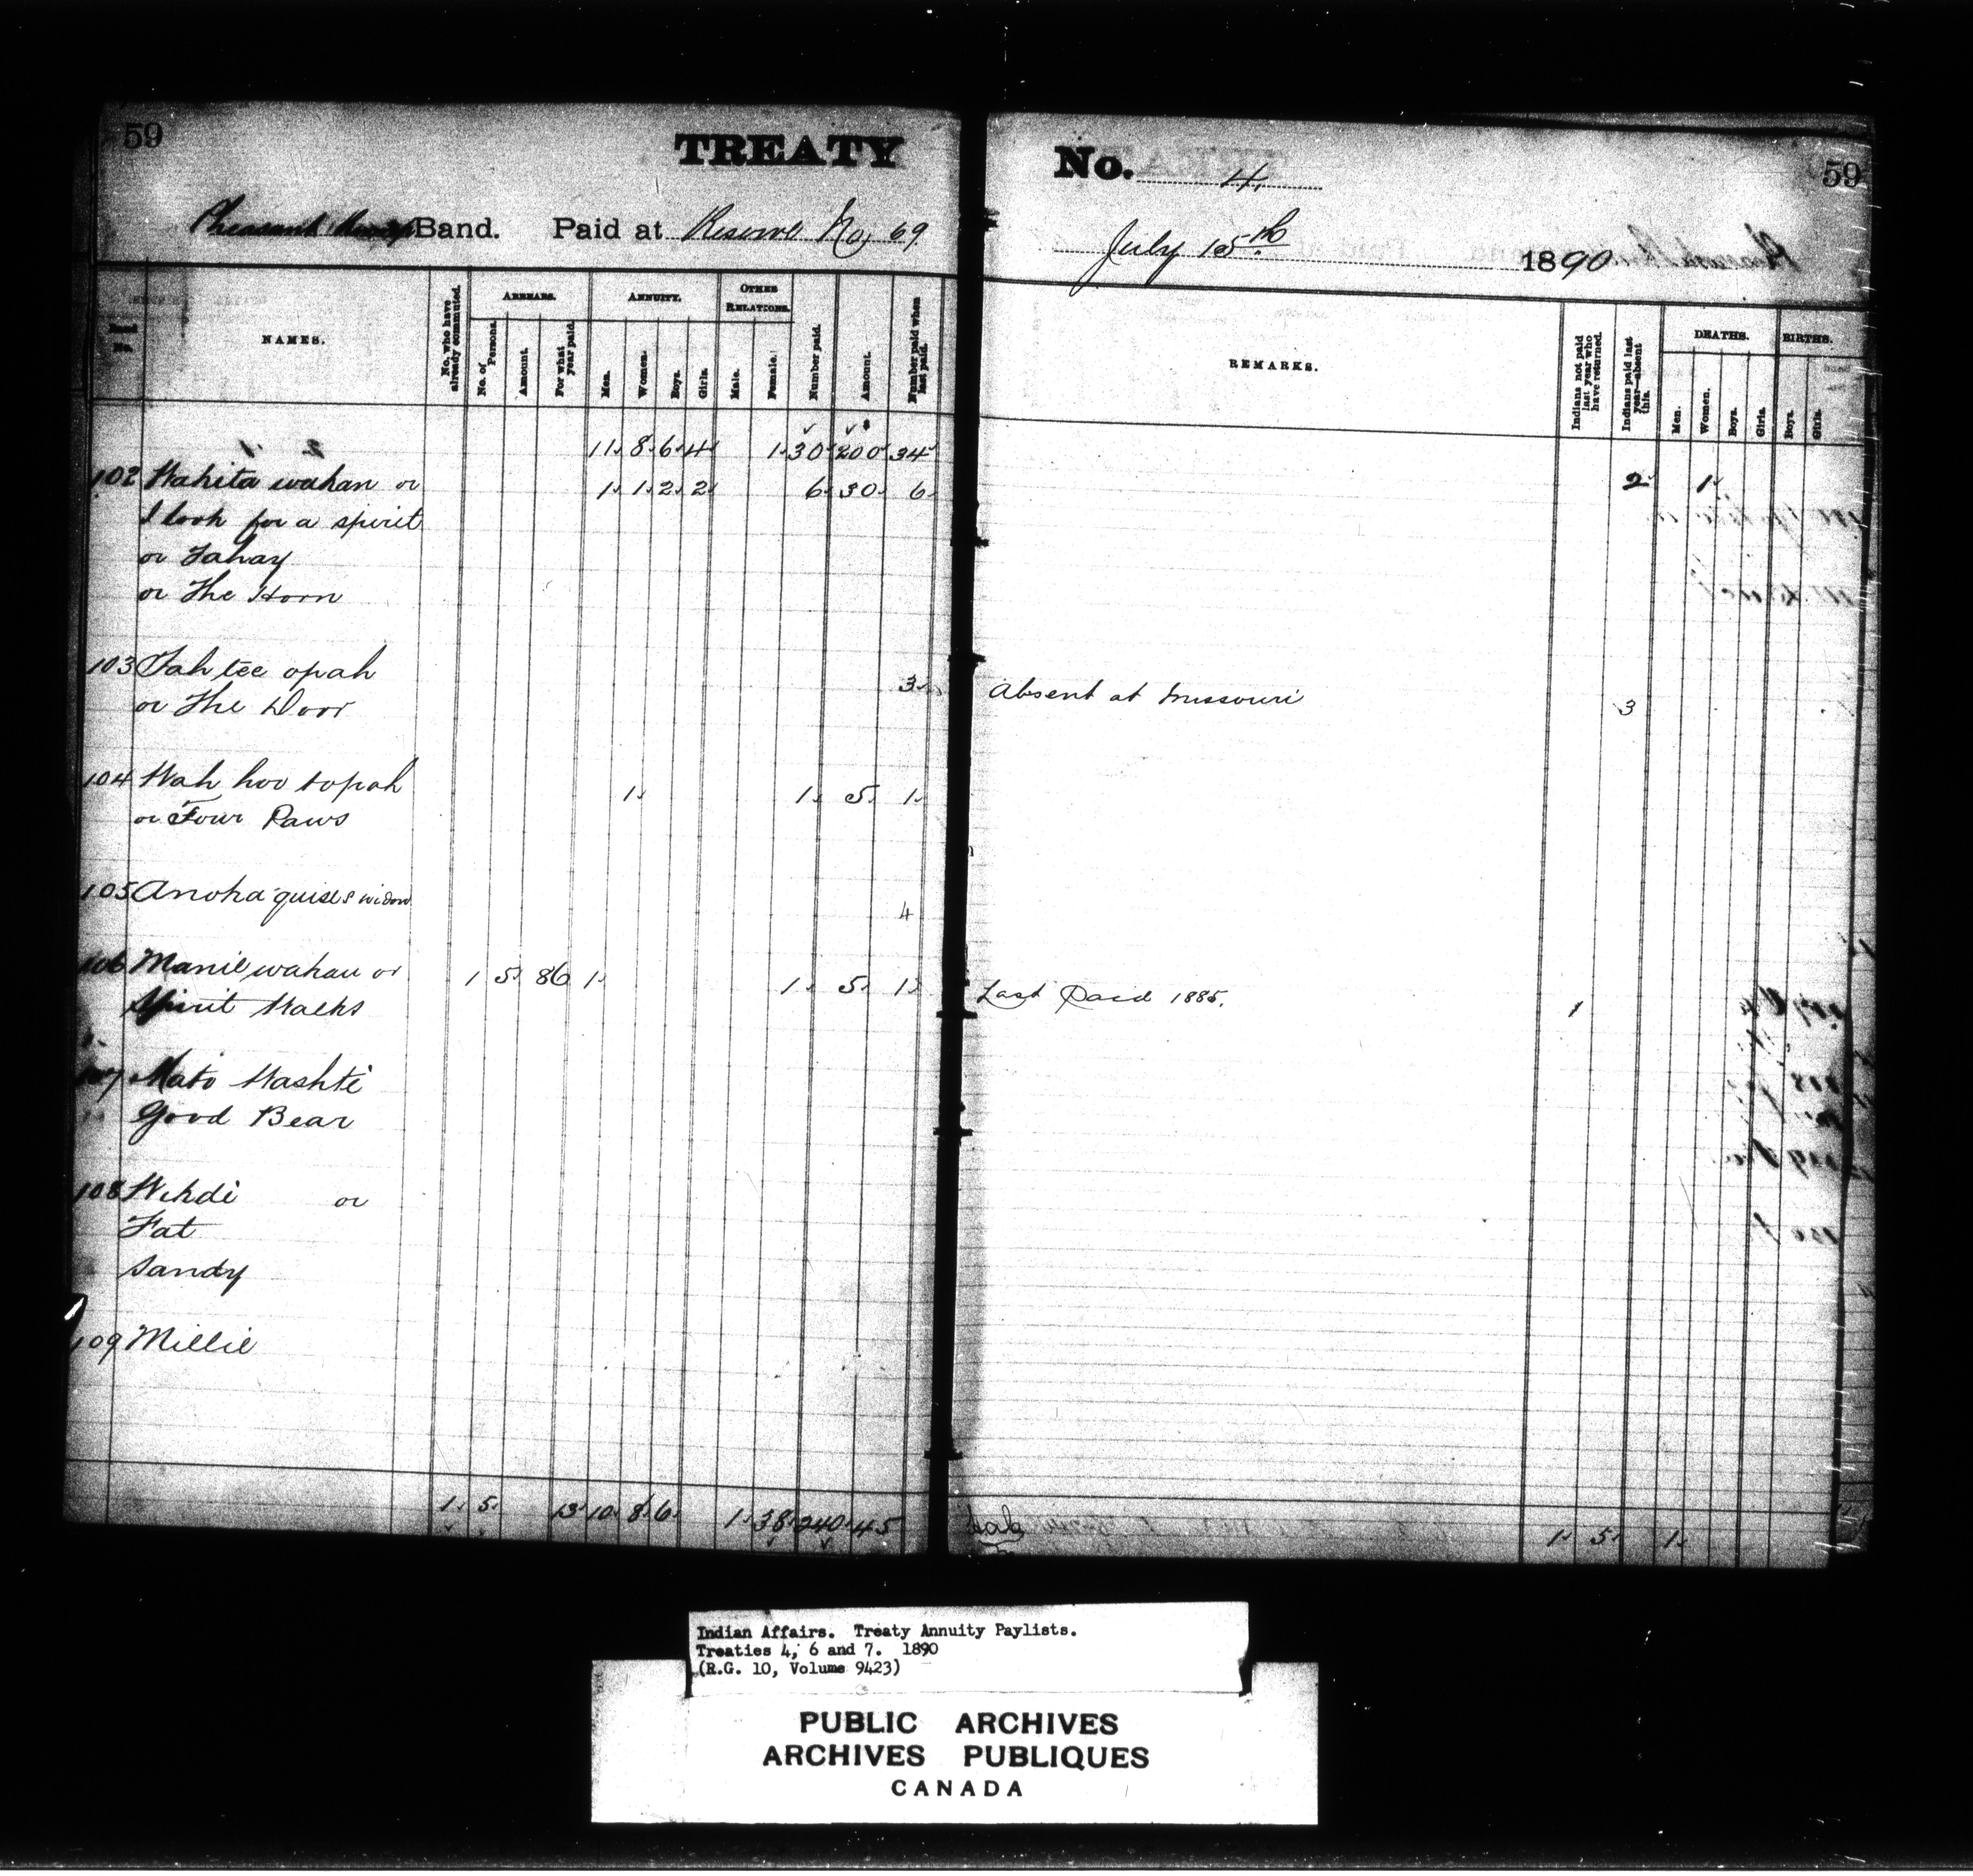 59
TREATY
No. 4.
59
Pheasant Rump Band. Paid at Reserve No 69
July 15th 1890
Band No.
NAMES.
No. who have already commuted.
ARREARS.
No. of Persons.
Amount.
For what year paid.
ANNUITY.
Men.
Women.
Boys.
Girls.
OTHER RELATIONS.
Male.
Female.
Number paid.
Amount.
Number paid when last paid.
REMARKS.
Indians not paid last year who have returned.
Indians paid last year—absent this.
DEATHS.
Men.
Women.
Boys.
Girls.
BIRTHS.
Boys.
Girls.
11 8 6 4 1 30 200 34 2 1
102 Wahita wahan or 1 1 2 2 6 30 6
I look for a spirit
or Tahay
or The Horn
103 Tah tee opah 3 Absent at Missouri 3
or The Door
104 Wah hoo topah 1 1 5 1
or Four Paws
105 Anoka quise's widow 4
106 Manie wahan or 1 5 86 1 1 5 1 Last Paid 1885. 1
Spirit Walks
107 Mato Washte
Good Bear
108 Wehdi or
Fat
Sandy
109 Millie
1 5 13 10 8 6 1 38 240 45 1 5 1
Indian Affairs. Treaty Annuity Paylists.
Treaties 4, 6 and 7. 1890
(R.G. 10, Volume 9423)
PUBLIC ARCHIVES
ARCHIVES PUBLIQUES
CANADA